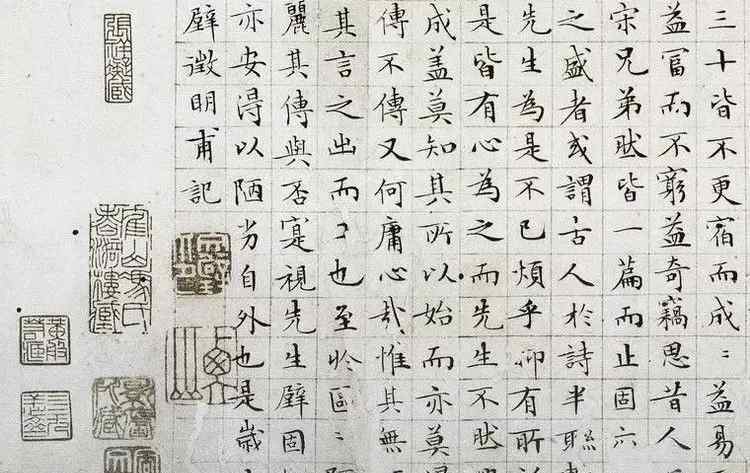 三十皆不更宿而成〻益易
益富而不窮益奇竊思昔人
宋兄弟然皆一篇而止固六
之盛者或謂古人於詩半聯
先生為是不已煩乎抑有所
是皆有心為之而先生不然
成盖莫知其所以始而亦莫
傳不傳又何庸心哉惟其無
其言之出而工也至於區〻
麗其傳與否寔視先生壁固
亦安淂以陋劣自外也是歲
壁徵明甫記